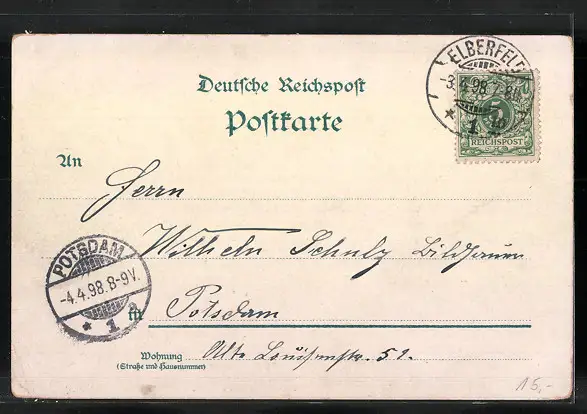 ELBERFELD
-3.4.98.7-8N.
* 1
5
REICHSPOST
Deutsche Reichspost
Postkarte
An
Herrn
Wilhelm Schulz Bildhauer
POTSDAM
-4.4.98.8-9V.
* 1
in Potsdam
Wohnung Alte Louisenstr. 51.
(Straße und Hausnummer)
15,-